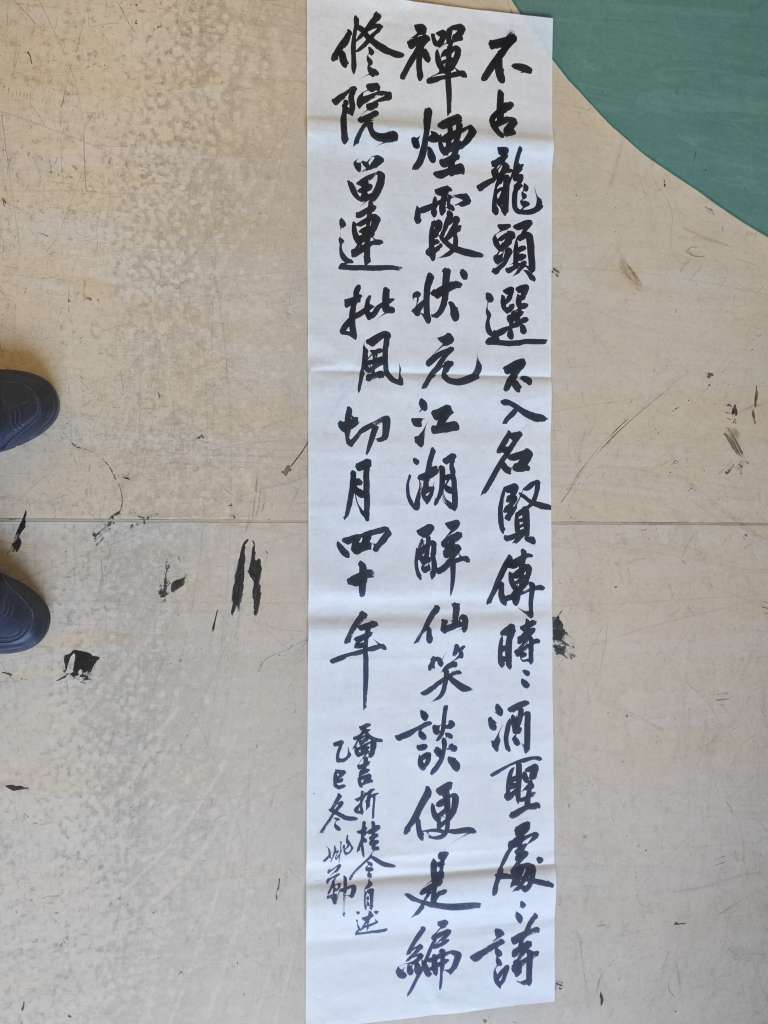 不占龍頭選不入名賢傳時〻酒聖處〻詩
禪煙霞狀元江湖醉仙笑談便是編
修院留連批風切月四十年
喬吉折桂令自述
乙巳冬姚勤